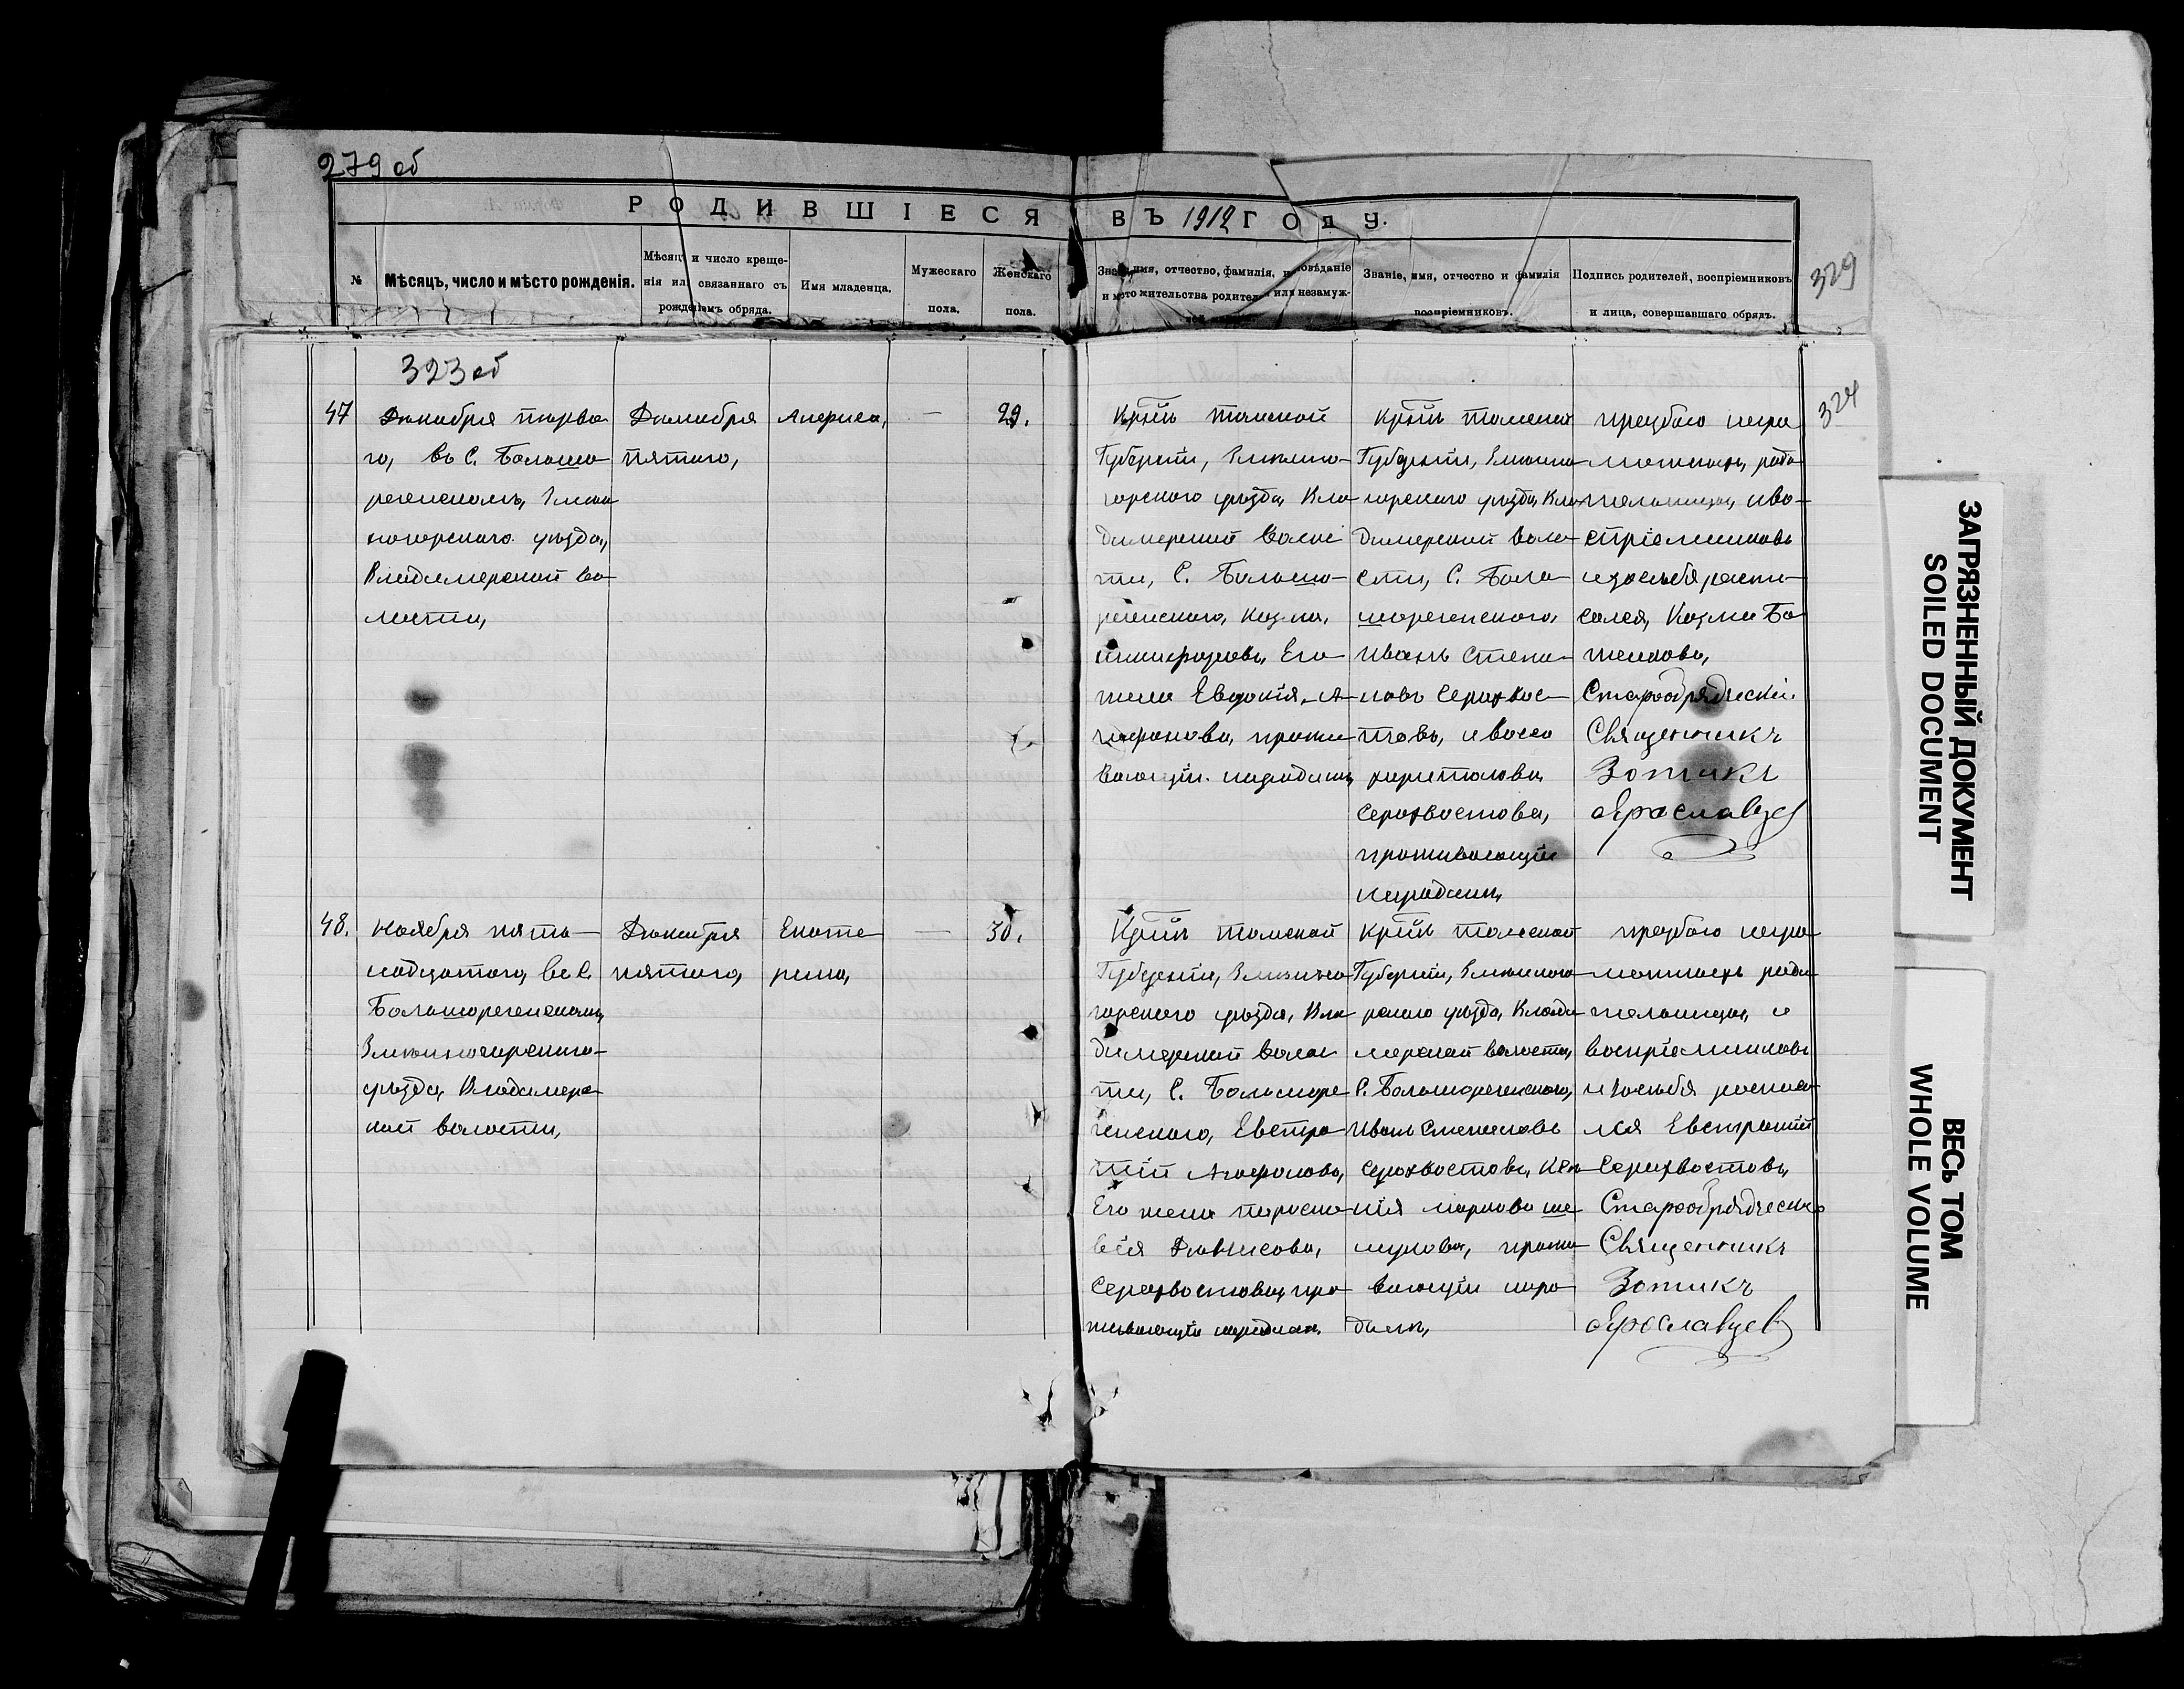 279 об
РОДИВШІЕСЯ ВЪ 1912 ГОДУ.
№
Мѣсяцъ, число и мѣсто рожденія.
Мѣсяцъ и число креще-
нія или связаннаго съ
рожденіемъ обряда.
Имя младенца.
Мужескаго
пола.
Женскаго
пола.
имя, отчество, фамилія,
и мѣсто жительства или незамуж-
Званіе, имя, отчество и фамилія
воспріемниковъ.
Подпись родителей, воспріемниковъ
и лица, совершавшаго обрядъ.
329
323 об
324
47
Декабря перва
го, въ С. Больше
реченскомъ, Змеи
ногорскаго уѣзда,
Владимерской во
лости,
Декабря
пятаго,
—
29.
Крнъ Томской
Губерніи, Змеино-
горскаго уѣзда, Вла
димерской волос
ти, С. Больше-
реченскаго, Козма,
Его
жена Евдокія, А-
прожи
вающіи
Крнъ Томской
Губерніи, Змеино
горскаго уѣзда, Вла
димерской воло
сти, С. Боль
шереченскаго,
Иванъ Степа-
новъ Серохвос-
товъ, и
Серохвостова,
проживающіи
прозбою негра
мотныхъ, роди
тельницы, иво-
спріемниковъ
изасебя роспи-
сался, Козма Бо
женовъ,
Старообрядческій
Священникъ
Зотикъ
Ярославцев
48.
Ноября пять
надцатого, вс С.
Большереченскомъ,
Змеиногорского
уѣзда, Владимерс
кой волости,
Декабря
пятаго,
Екате
рина,
—
30.
Крнъ Томской
Губерніи, Змеино
горскаго уѣзда, Вла
димерской волос
ти, С. Большере
ченскаго, Евстра
тій
Его жена Параско
вѣя Денисова,
Серохвостовы, про
живающіи
Крнъ Томской
Губерніи, Змеиного
рскаго уѣзда, Влади
мерской волости,
С. Большереченскаго,
Иванъ Степановъ
Серохвостовъ, Ксе
нія Маркова ше
прожи
вающіи
прозбою негра
мотныхъ роди
тельницы, и
воспріемниковъ
изасебя росписа
лся Евстратій
Серохвостовъ,
Старообрядческій
Священникъ
Зотикъ
Ярославцев
ЗАГРЯЗНЕННЫЙ ДОКУМЕНТ
SOILED DOCUMENT
ВЕСЬ ТОМ
WHOLE VOLUME